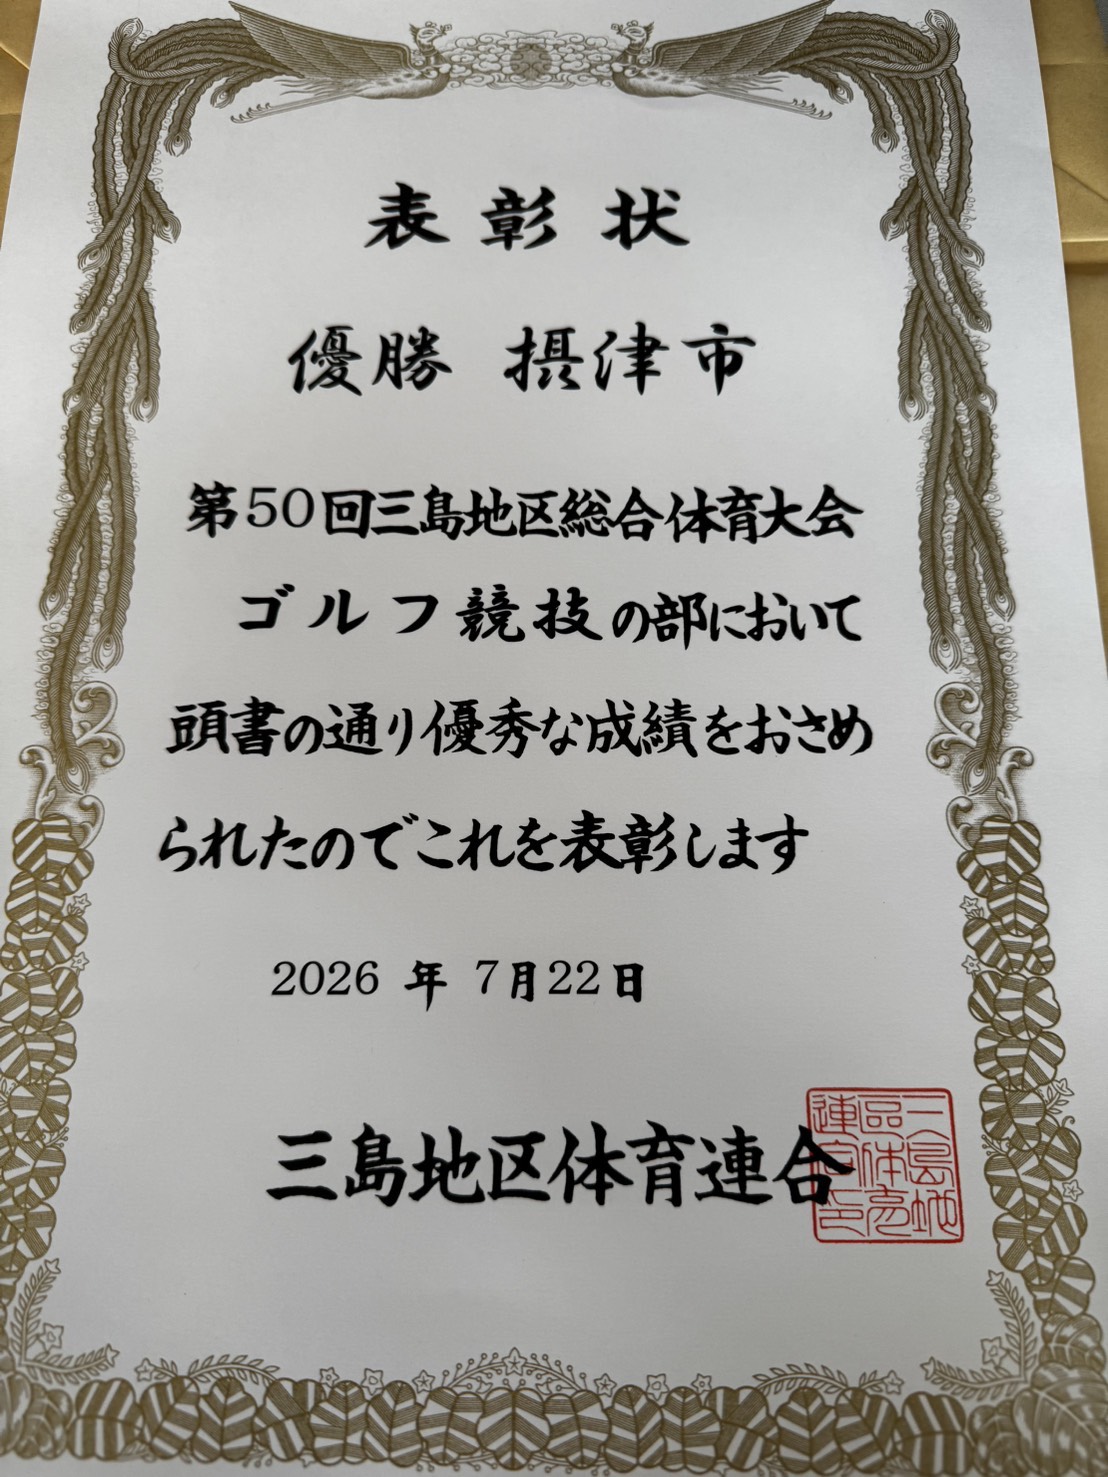 表彰状
優勝 摂津市
第50回三島地区総合体育大会
ゴルフ競技の部において
頭書の通り優秀な成績をおさめ
られたのでこれを表彰します
2026 年 7月22日
三島地区体育連合
三島地
区体育
連合印